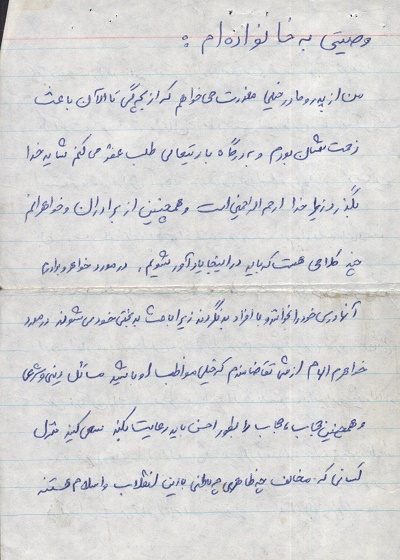 وصیتی به خانواده ام :
من از پدر و مادر خیلی معذرت می خواهم که از بچگی تا الان باعث
زحمتشان بودم و به درگاه باریتعالی طلب عفو می کنم شاید خدا
بگذرد زیرا خدا ارحم الراحمین است و همچنین از برادران و خواهرانم
چند کلامی هست که باید در اینجا یادآور شویم . در مورد خواهر و برادرها
آنها درس خود را بخوانند و با افراد بد نگردند زیرا باعث بدبختی خود می شوند در مورد
خواهرم الهام از شما تقاضامندم که خیلی مواظب او باشید مسائل دینی و شرعی
و همچنین حجاب ، حجاب را بطور احسن باید رعایت بکند سعی کنید منزل
کسانی که مخالف چه ظاهری چه باطنی با این انقلاب و اسلام هستند